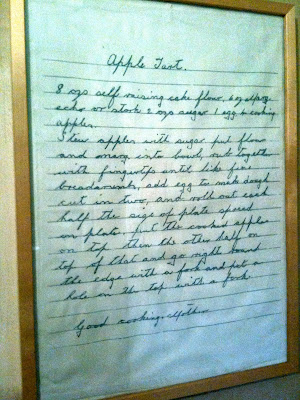 Apple Tart.
8 ozs self raising cake flour, 6 ozs
echo or stork 2 ozs sugar 1 egg & cooking
apples.
Stew apples with sugar put flour
and marg into bowl, rub together
with fingertips until like fine
breadcrumbs, add egg to make dough
cut in two, and roll out each
half the size of plate spread
on plate. Put the cooked apples
on top then the other half on
top of that and go right round
the edge with a fork and put a
hole on the top with a fork.
Good cooking. Mother